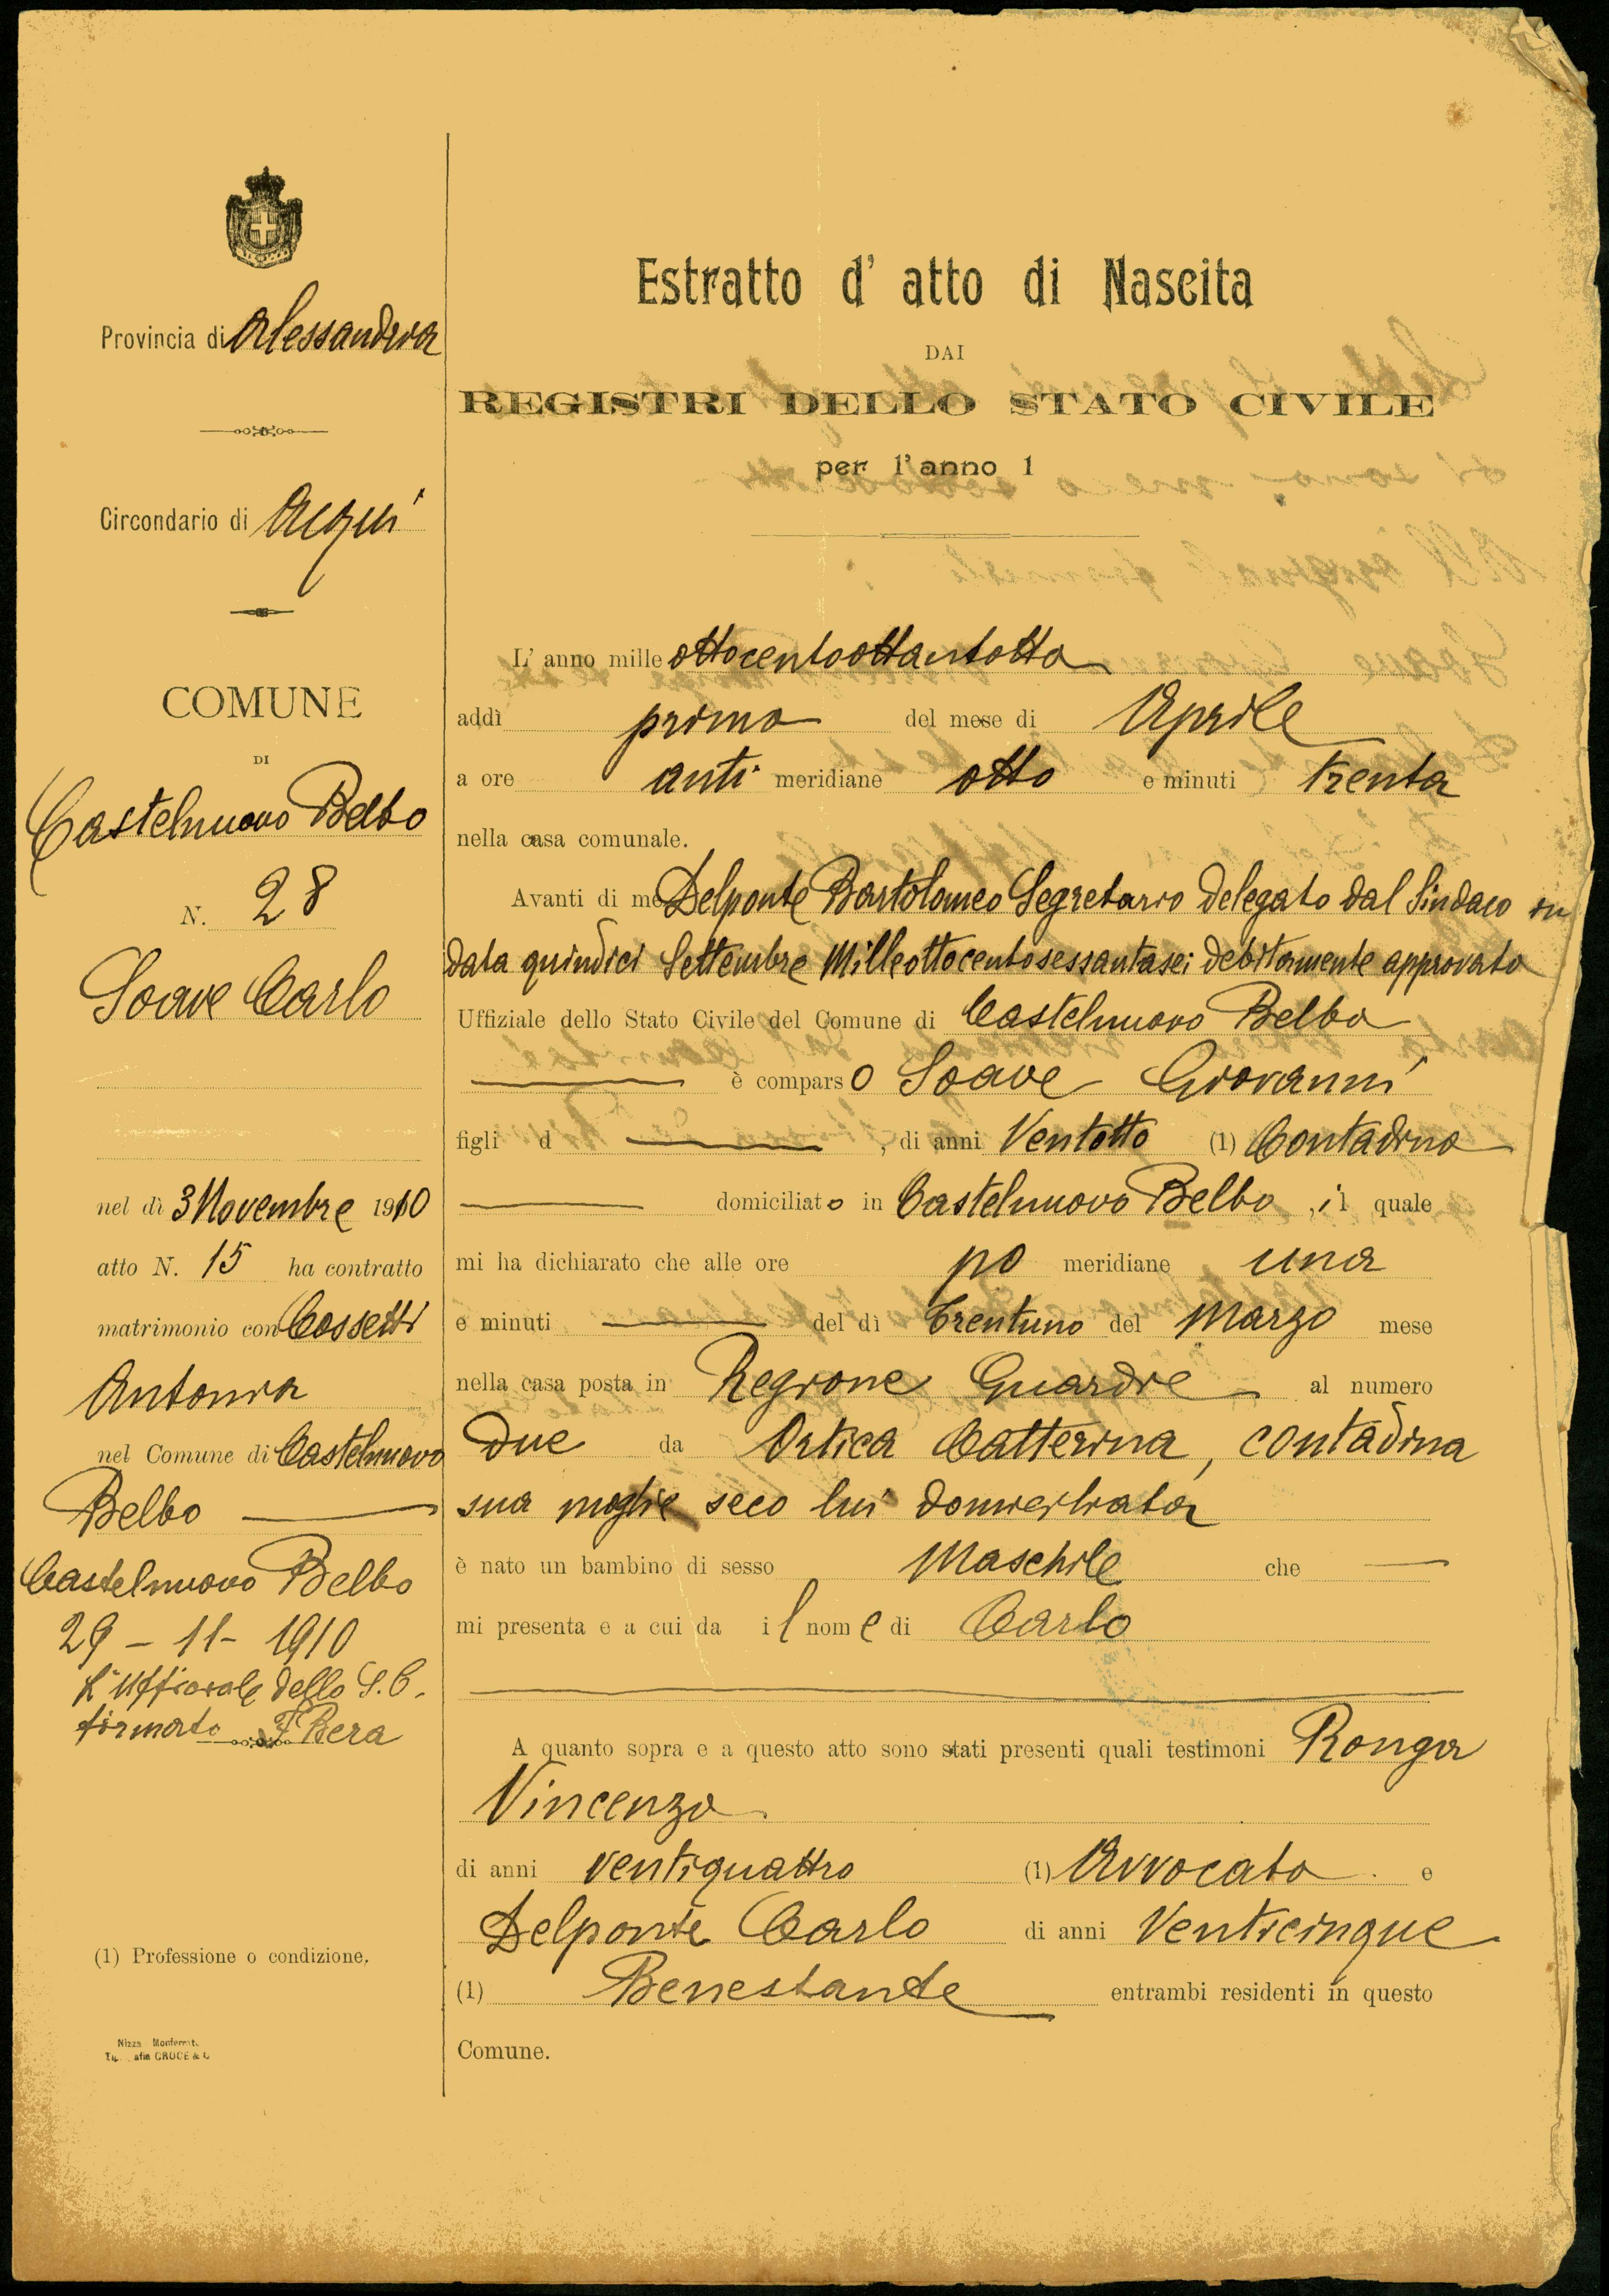 Provincia di Alessandria
Circondario di Acqui
COMUNE
DI
Castelnuovo Belbo
N. 28
Soave Carlo
nel dì 3 Novembre 1910
atto N. 15 ha contratto
matrimonio con Cossetti
Antonia
nel Comune di Castelnuovo
Belbo
Castelnuovo Belbo
29 - 11 - 1910
L'Uffiziale dello S. C.
firmato F Bera
(1) Professione o condizione.
Nizza Monferrato
CROCE & C
Estratto d' atto di Nascita
DAI
REGISTRI DELLO STATO CIVILE
per l'anno 1
L' anno mille ottocentoottantotto
addì primo del mese di Aprile
a ore anti meridiane otto e minuti trenta
nella casa comunale.
Avanti di me Delponte Bartolomeo Segretario delegato dal Sindaco in
data quindici Settembre Milleottocentosessantasei debitamente approvato
Uffiziale dello Stato Civile del Comune di Castelnuovo Belbo
è comparso Soave Giovanni
figli d , di anni Ventotto (1) Contadino
domiciliato in Castelnuovo Belbo , il quale
mi ha dichiarato che alle ore po meridiane una
e minuti del dì trentuno del Marzo mese
nella casa posta in Regione Guardie al numero
due da Ortica Catterina, contadina
sua moglie seco lui domiciliata
è nato un bambino di sesso Maschile che
mi presenta e a cui da il nome di Carlo
A quanto sopra e a questo atto sono stati presenti quali testimoni Ronga
Vincenzo
di anni ventiquattro (1) Avvocato e
Delponte Carlo di anni Venticinque
(1) Benestante entrambi residenti in questo
Comune.